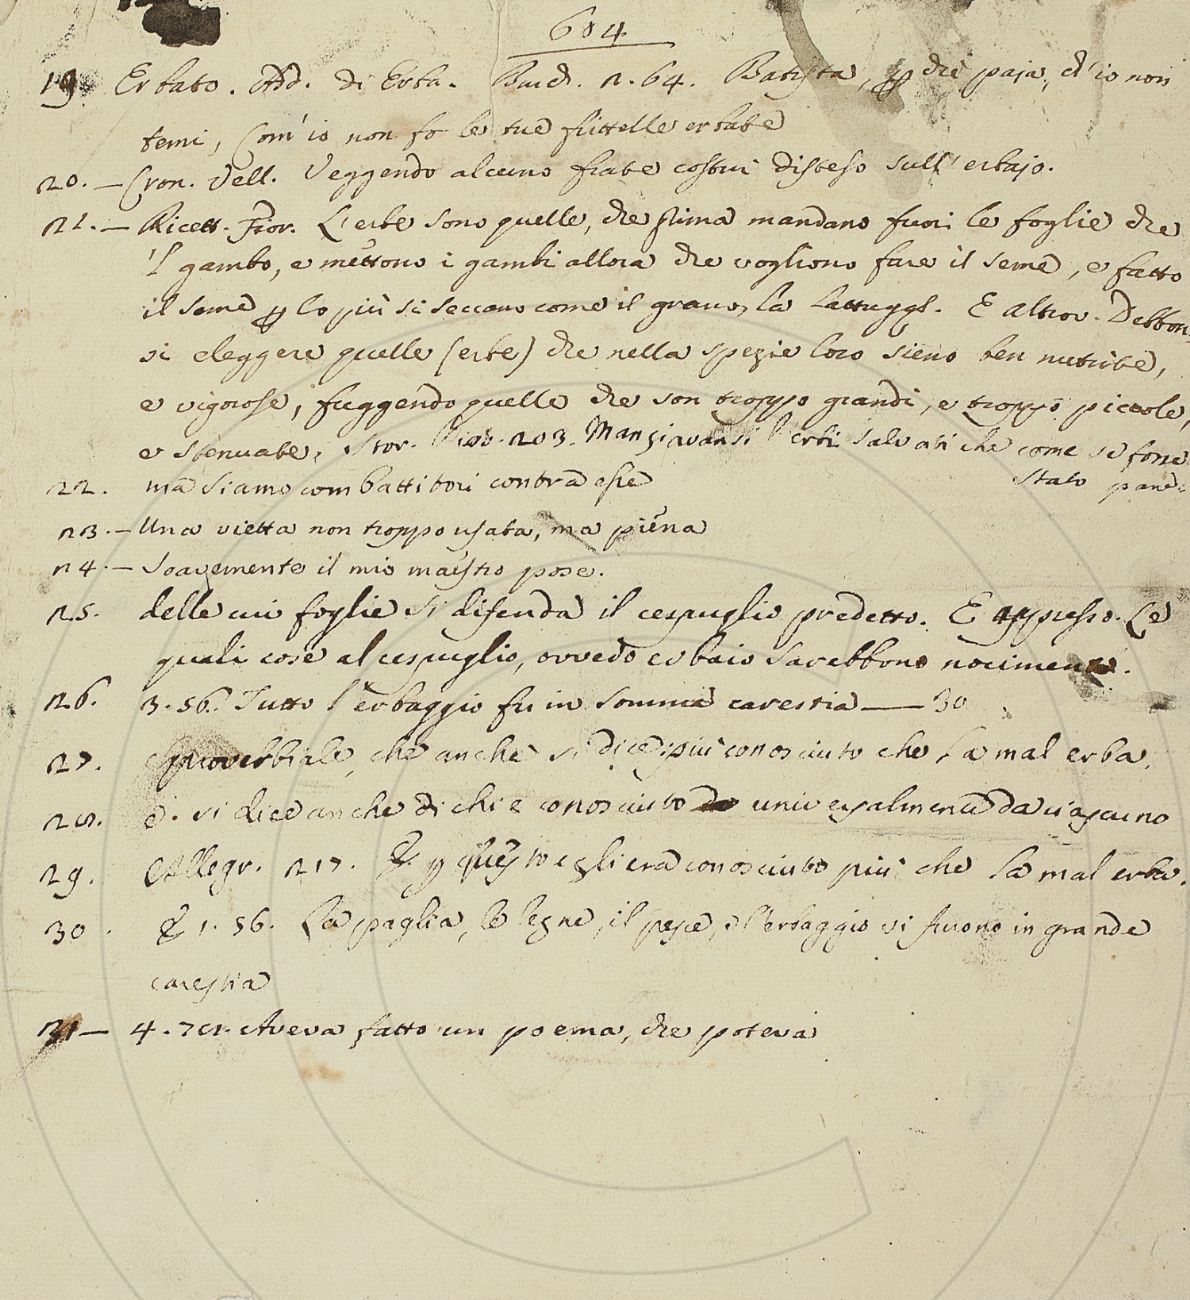 604
19. Erbato. Add. di Erba. Burch. 2. 64. Batista, p che paja, ch'io non
temi, Com'io non fo le tue frittelle erbate
20. — Cron. Vell. Veggendo alcuno fiate costui disteso sull'erbajo.
21. — Ricett. Fior. L'erbe sono quelle, che prima mandano fuori le foglie che
'l gambo, e mettono i gambi allora che vogliono fare il seme, e fatto
il seme p lo più si seccano come il grano, la Lattugg. E altrov. Debbon
si eleggere quelle (erbe) che nella spezie loro sieno ben nutrite,
e vigorose, fuggendo quelle che son troppo grandi, e troppo piccole,
e stenuate. Stor. 203. Mangiavansi l'erbe salvatiche come se fosse
stato pane.
22. ma siamo combattitori contra esse
23. — Una vietta non troppo usata, ma piena
24. — Soavemente il mio maestro pose.
25. delle cui foglie si difenda il cespuglio predetto. E appresso. Le
quali cose al cespuglio, ovvedo erbaio sarebbono nocimento.
26. 3. 56. Tutto l'erbaggio fu in somma carestia — 30
27. proverbiale, che anche si dice più conosciuto che la mal erba.
28. e. si dice anche di chi e conosciuto universalmente da ciascuno
29. Allegr. 217. E p questo egli era conosciuto più che la mal erba.
30. E 1. 56. La paglia, le legne, il pesce, e l'erbaggio vi furono in grande
carestia
31 — 4. 78. Aveva fatto un poema, che poteva